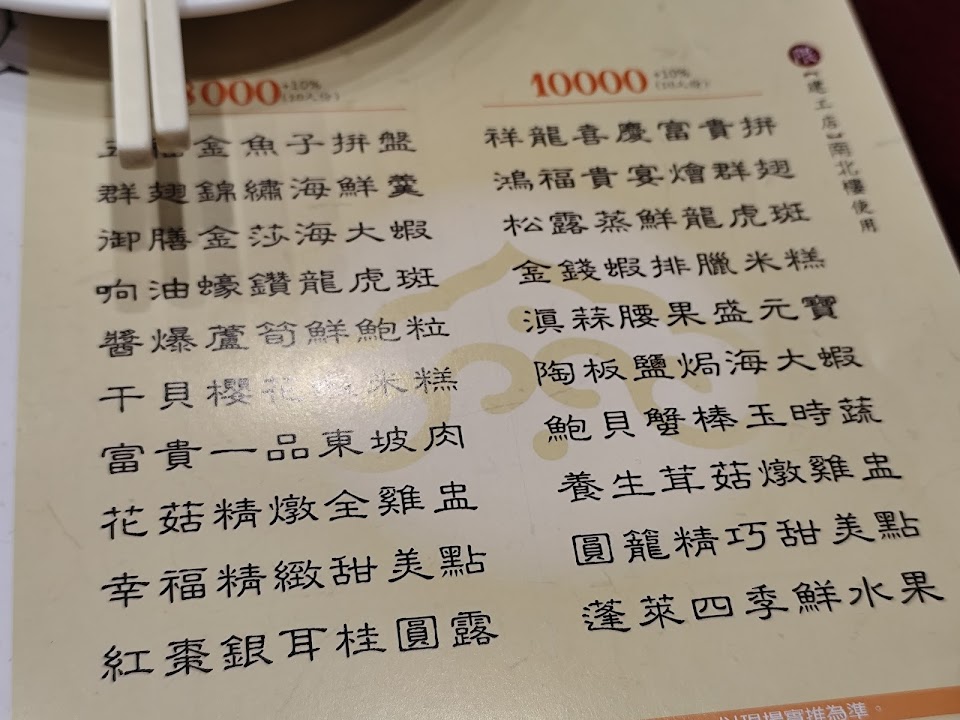 8000 +10% (10人份)
金魚子拼盤
群翅錦繡海鮮羹
御膳金莎海大蝦
响油蠔鑽龍虎斑
醬爆蘆筍鮮鮑粒
干貝櫻花米糕
富貴一品東坡肉
花菇精燉全雞盅
幸福精緻甜美點
紅棗銀耳桂圓露
10000 +10% (10人份)
祥龍喜慶富貴拼
鴻福貴宴燴群翅
松露蒸鮮龍虎斑
金錢蝦排臘米糕
滇蒜腰果盛元寶
陶板鹽焗海大蝦
鮑貝蟹棒玉時蔬
養生茸菇燉雞盅
圓籠精巧甜美點
蓬萊四季鮮水果
限【建工店】南北樓使用
以現場實推為準。